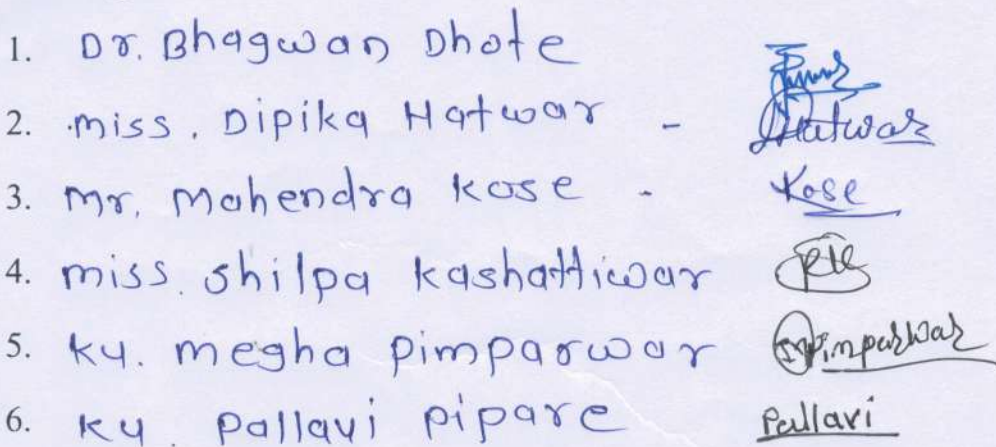 1. Dr. Bhagwan Dhote
2. miss. Dipika Hatwar - Hatwar
3. mr. Mahendra kose - Kose
4. miss. shilpa kashattiwar
5. ku. megha pimparwar Pimparwar
6. ku. pallavi pipare Pallavi